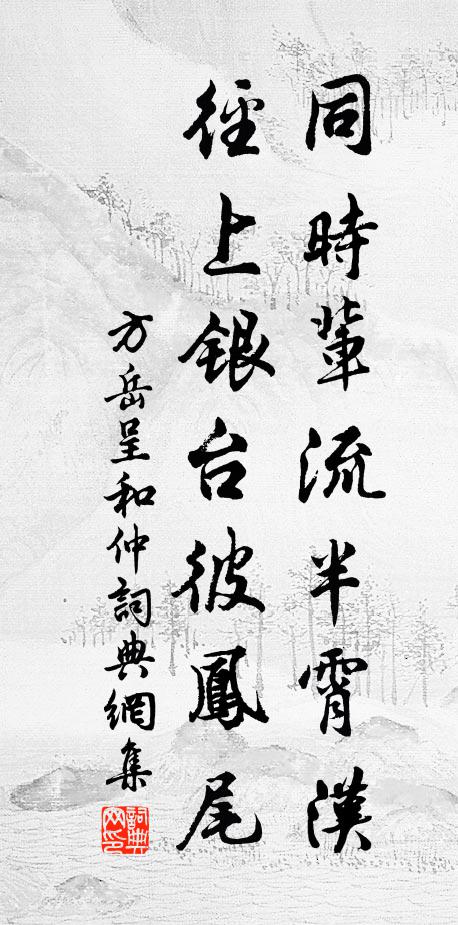 同時輩流半霄漢
徑上銀台彼鳳尾
方岳呈和仲詞典網集
詞典網印